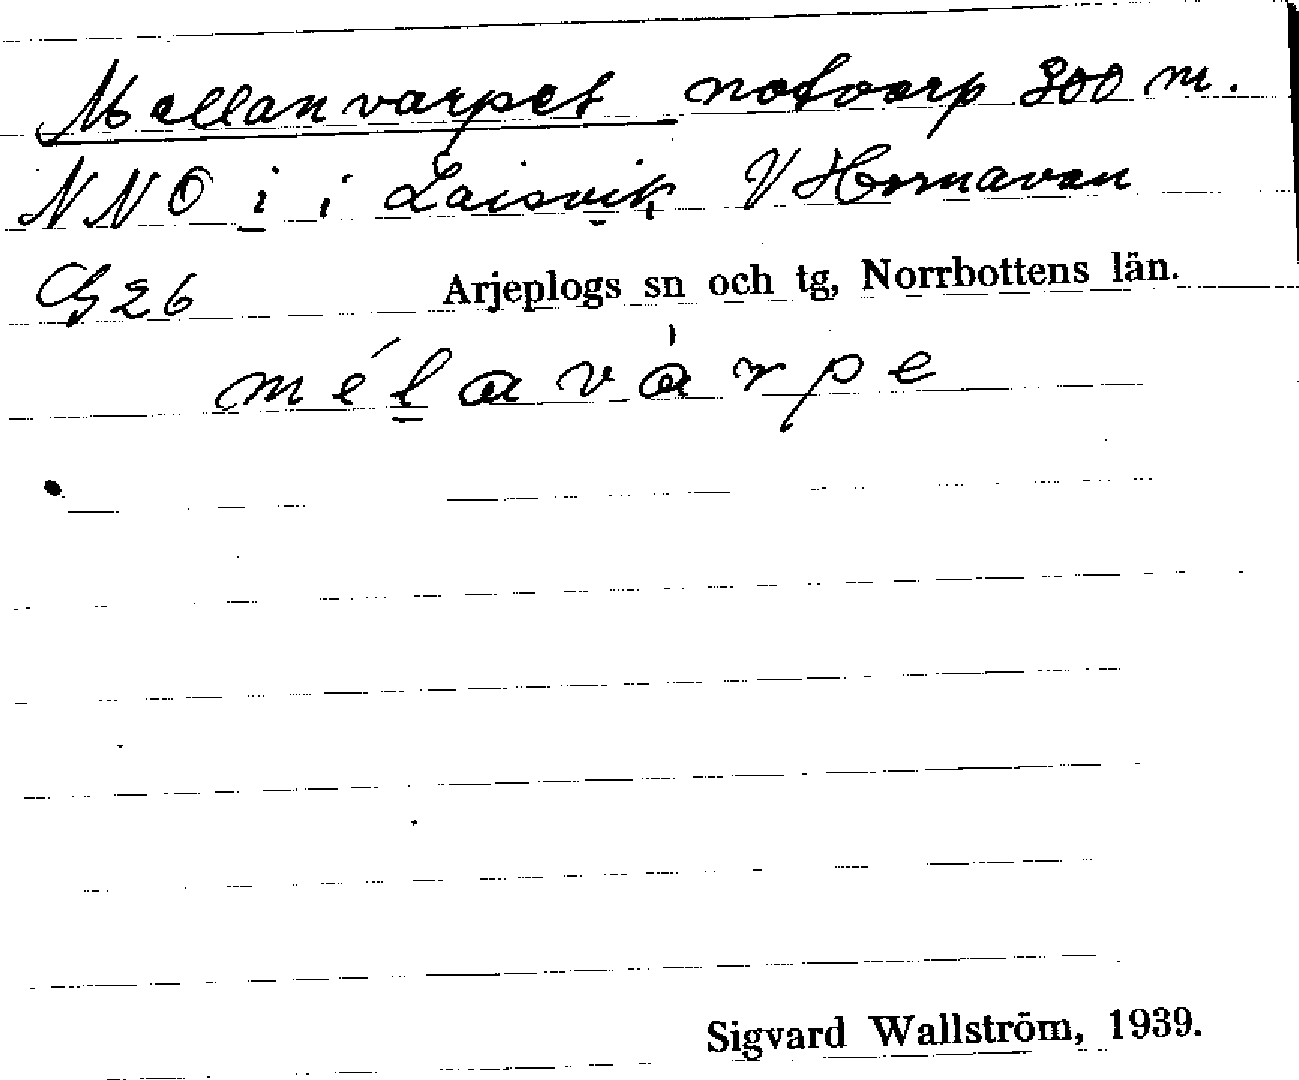 Mellanvarpet notvarp 300 m.
NNO i i Laisvik V Hornavan
G 26 Arjeplogs sn och tg, Norrbottens län.
mélavàrpe
Sigvard Wallström, 1939.